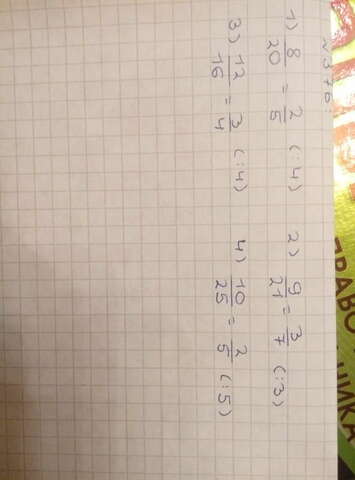 №376:
1) 8/20 = 2/5 (:4) 2) 9/21 = 3/7 (:3)
3) 12/16 = 3/4 (:4) 4) 10/25 = 2/5 (:5)